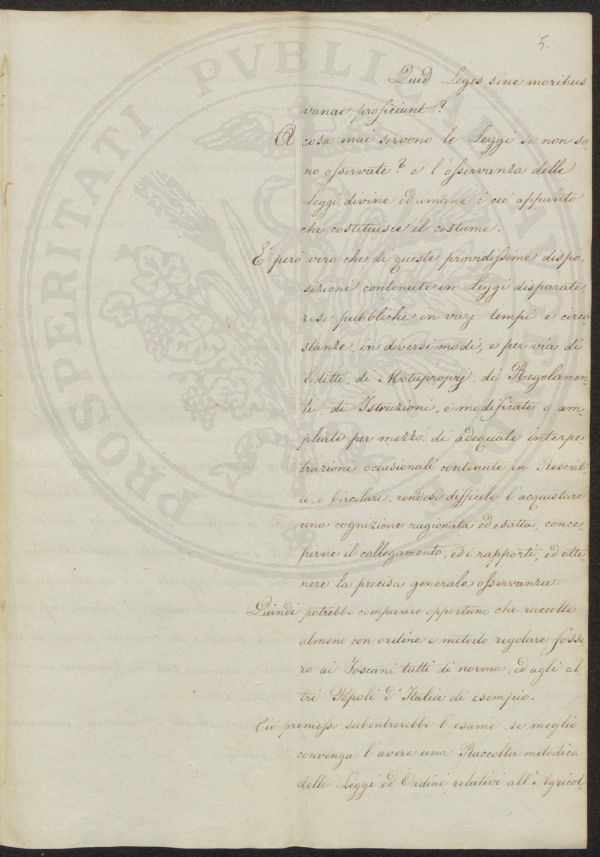 5.
Quid Leges sine moribus
vanae proficiunt?
A cosa mai servono le Leggi se non so
no osservate? e l'osservanza delle
Leggi divine ed umane è ciò appunto
che costituisce il costume.
E' però vero che di queste providissime dispo
sizioni contenute in Leggi disparate,
rese pubbliche in varj tempi e circo
stanze, in diversi modi, e per via di
Editti, di Motuproprj, di Regolamen
ti, di Istruzioni, e modificate o am
pliate per mezzo di adeguate interpe
trazioni occasionali contenute in Rescrit
ti, e Circolari, rendesi difficile l'acquistare
una cognizione ragionata ed esatta, conce
pirne il collegamento, ed i rapporti, ed otte
nere la precisa generale osservanza.
Quindi potrebbe comparire opportuno che raccolte
almeno con ordine e metodo regolare fosse
ro ai Toscani tutti di norma, ed agli al
tri Popoli d'Italia di esempio.
Ciò premesso subentrerebbe l'esame se meglio
convenga l'avere una Raccolta metodica
delle Leggi ed Ordini relativi all'Agricol
PROSPERITATI PVBLICAE